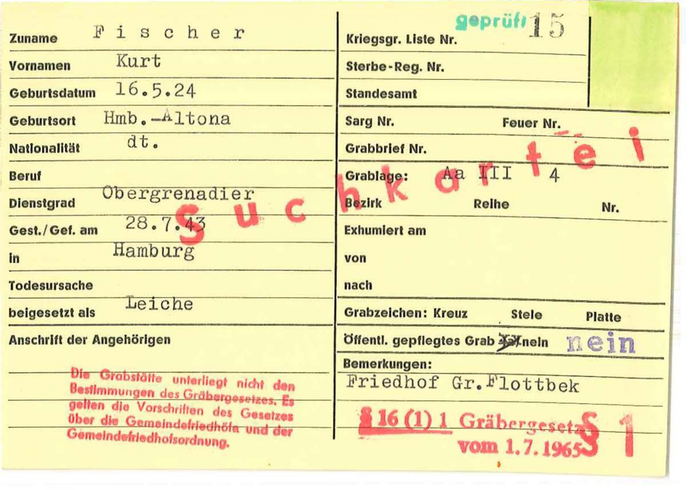 Zuname F i s c h e r
Vornamen Kurt
Geburtsdatum 16.5.24
Geburtsort Hmb.-Altona
Nationalität dt.
Beruf
Dienstgrad Obergrenadier
Gest./Gef. am 28.7.43
in Hamburg
Todesursache
beigesetzt als Leiche
Anschrift der Angehörigen
Die Grabstätte unterliegt nicht den
Bestimmungen des Gräbergesetzes. Es
gelten die Vorschriften des Gesetzes
über die Gemeindefriedhöfe und der
Gemeindefriedhofsordnung.
geprüft 15
Kriegsgr. Liste Nr.
Sterbe-Reg. Nr.
Standesamt
Sarg Nr. Feuer Nr.
Grabbrief Nr.
Grablage: Aa III 4
Bezirk Reihe Nr.
Suchkartei
Exhumiert am
von
nach
Grabzeichen: Kreuz Stele Platte
Öffentl. gepflegtes Grab ja/nein nein
Bemerkungen:
Friedhof Gr.Flottbek
§ 16 (1) 1 Gräbergesetz
vom 1.7.1965
§ 1